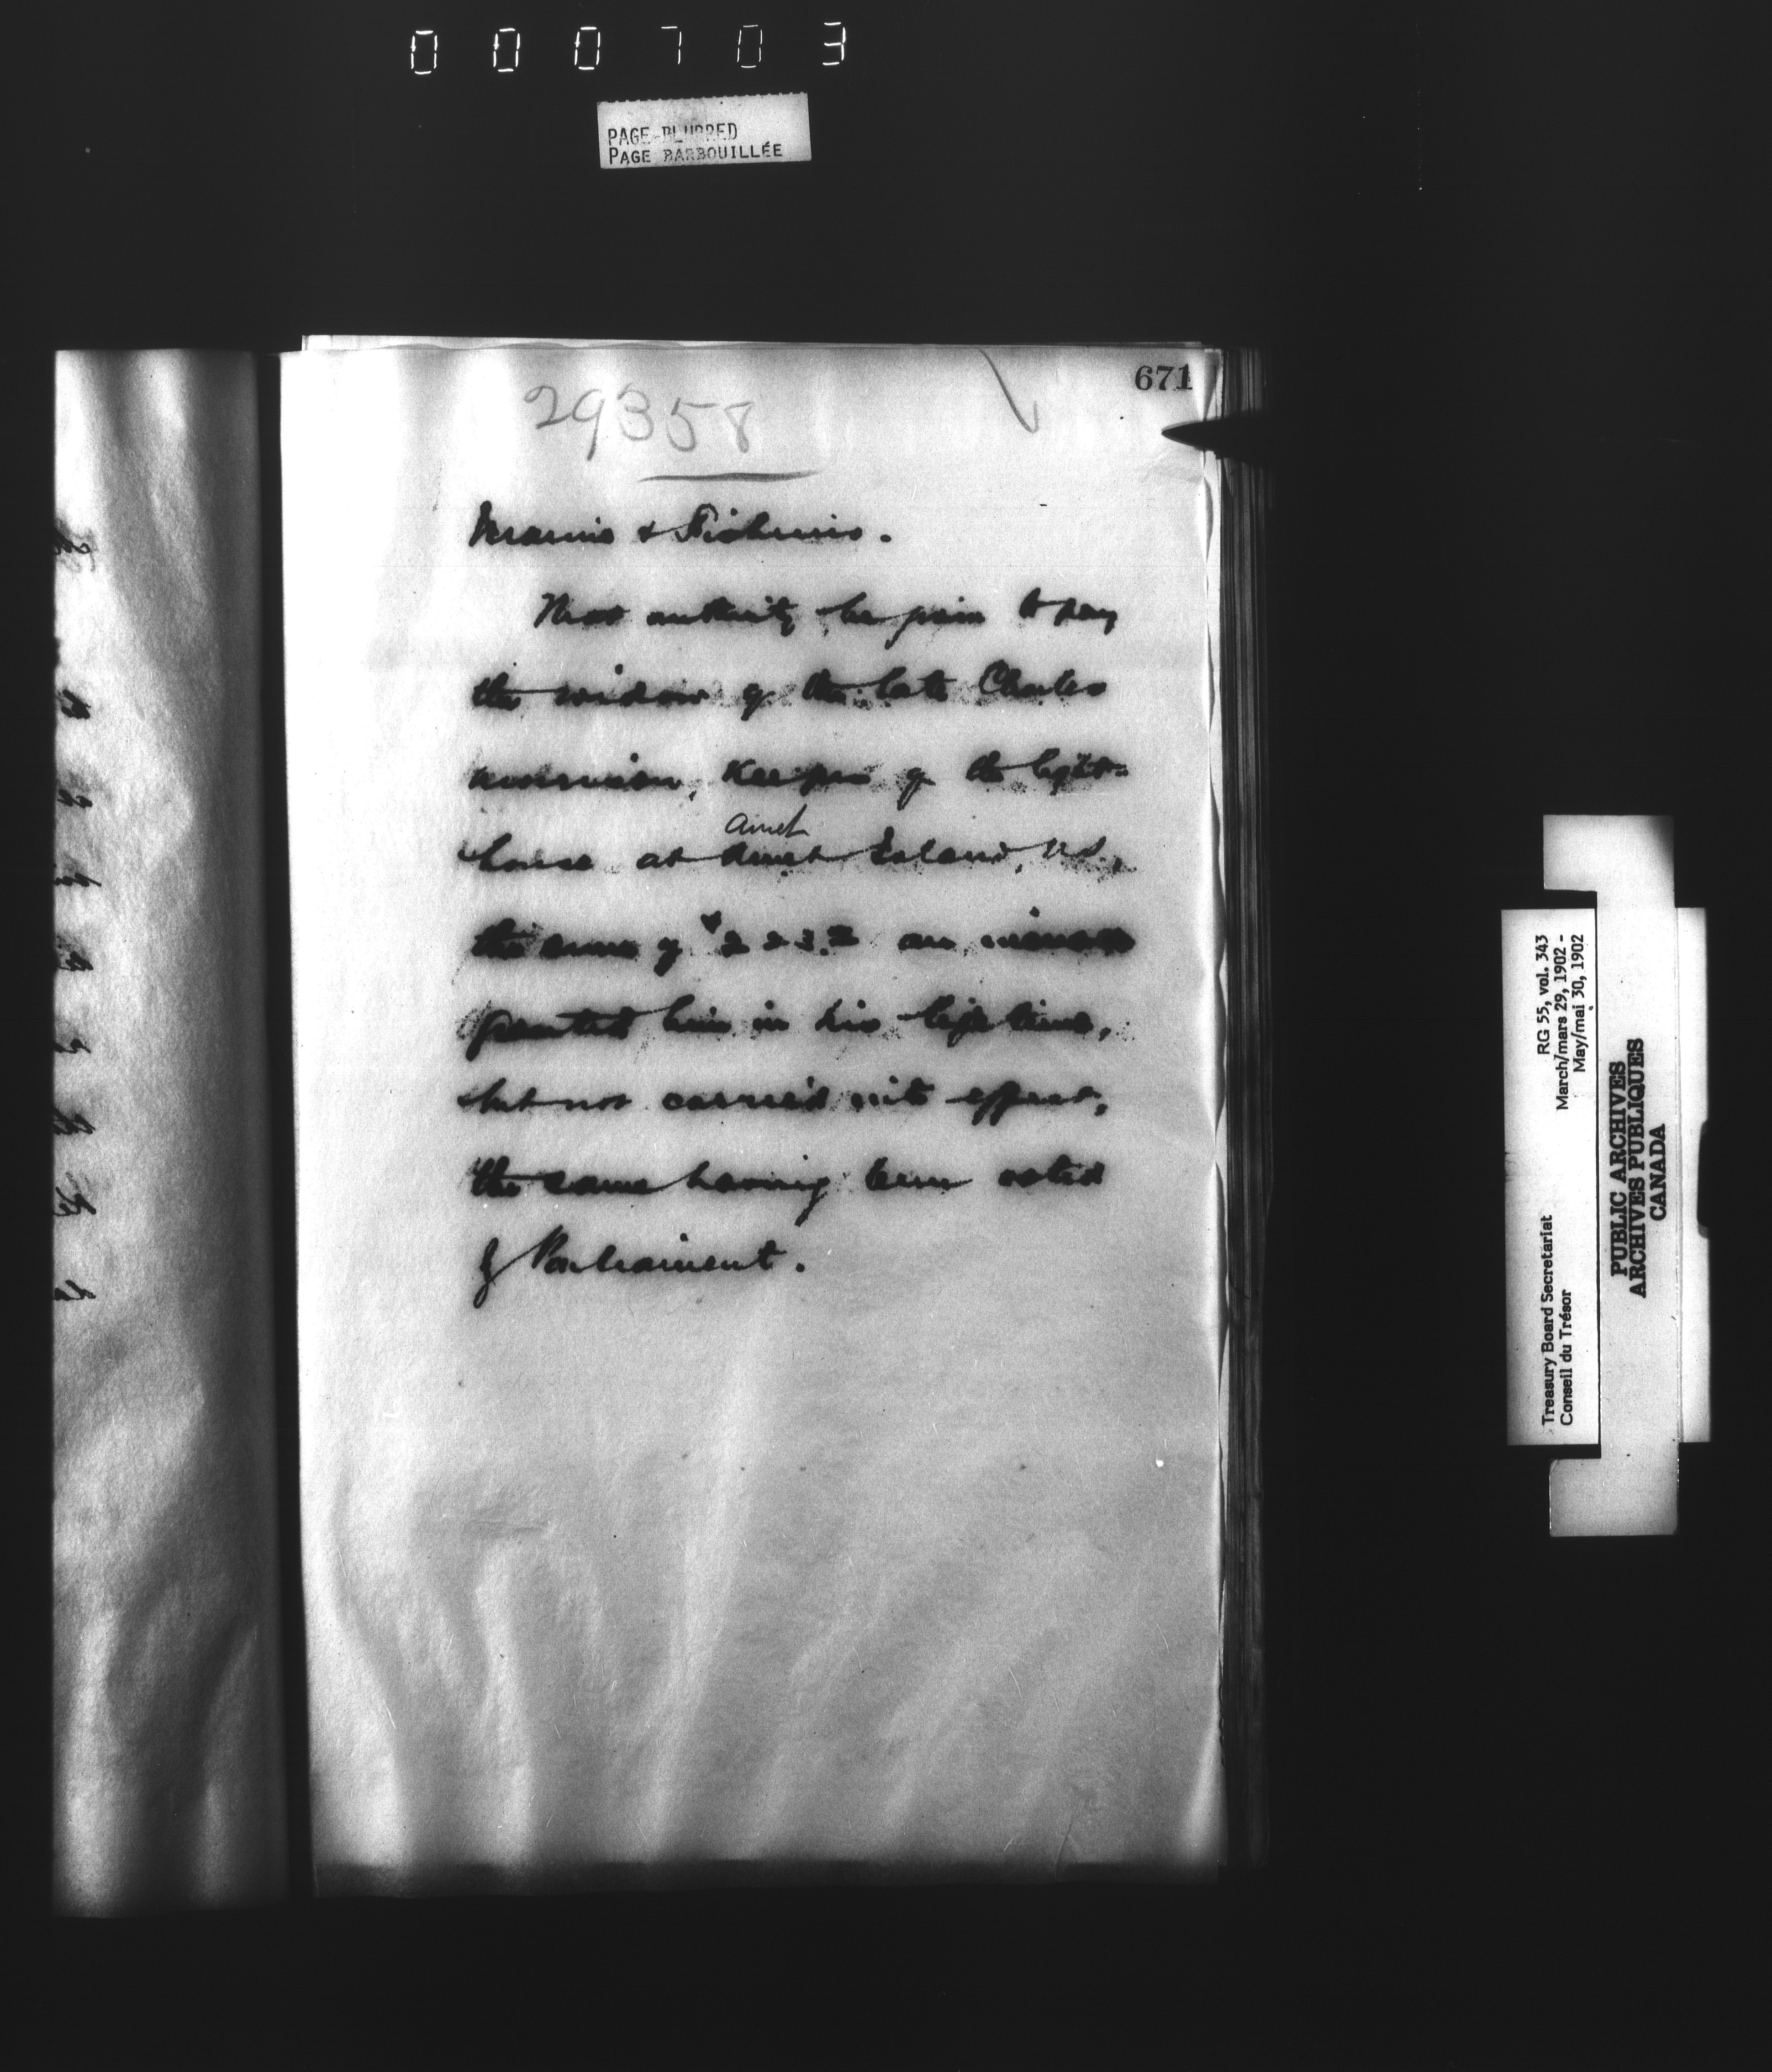 000703
PAGE BLURRED
PAGE BARBOUILLÉE
671
29358
Marine & Fisheries.
That authority be given to pay
the widow of the late Charles
Keeper of the light-
Amet
house at Amet Island, N.S.,
the sum of $ an increase
granted him in his life time,
but not carried into effect,
the same having been voted
by Parliament.
Treasury Board Secretariat RG 55, vol. 343
Conseil du Trésor March/mars 29, 1902 -
May/mai 30, 1902
PUBLIC ARCHIVES
ARCHIVES PUBLIQUES
CANADA